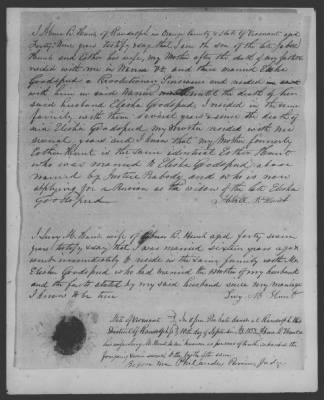 I James B. Hunt of Randolph in Orange County & State of Vermont aged
forty nine years testify & say that I am the son of the late Jabez
Hunt and Esther his wife, My Mother after the death of my father
resided with me in Warren Vt. and there married Elisha
Goodspeed a Revolutionary Pensioner and resided
with him in said Warren until the death of her
said husband Elisha Goodspeed, I resided in the same
family with them several years & since the death of
said Elisha Goodspeed my Mother resided with me
several years and I know that my Mother formerly
Esther Hunt is the same identical Esther Hunt
who was married to Elisha Goodspeed above
named by Justice Peabody and who is now
applying for a Pension as the widow of the late Elisha
Goodspeed. B. Hunt
I Lucy M. Hunt wife of James B. Hunt aged forty seven
years testify & say that I was married sixteen years ago &
went immediately to reside in the same family with Mr
Elisha Goodspeed who had married the Mother of my husband
and the facts stated by my said husband since my marriage
I know to be true Lucy M. Hunt
State of Vermont In Probate Court at Randolph this
District of Randolph 10th day of September 1853 James B. Hunt &
his wife Lucy M. Hunt to me known as persons of truth
foregoing were sworn to the
Before me Philander Perrin, Judge